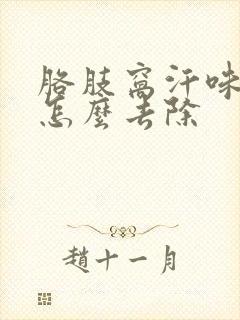 胳肢窩汗味
怎麼去除
趙十一月